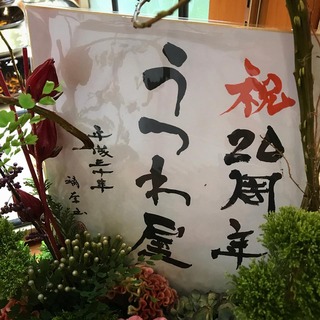 祝20周年
うつわ屋
平成三十年